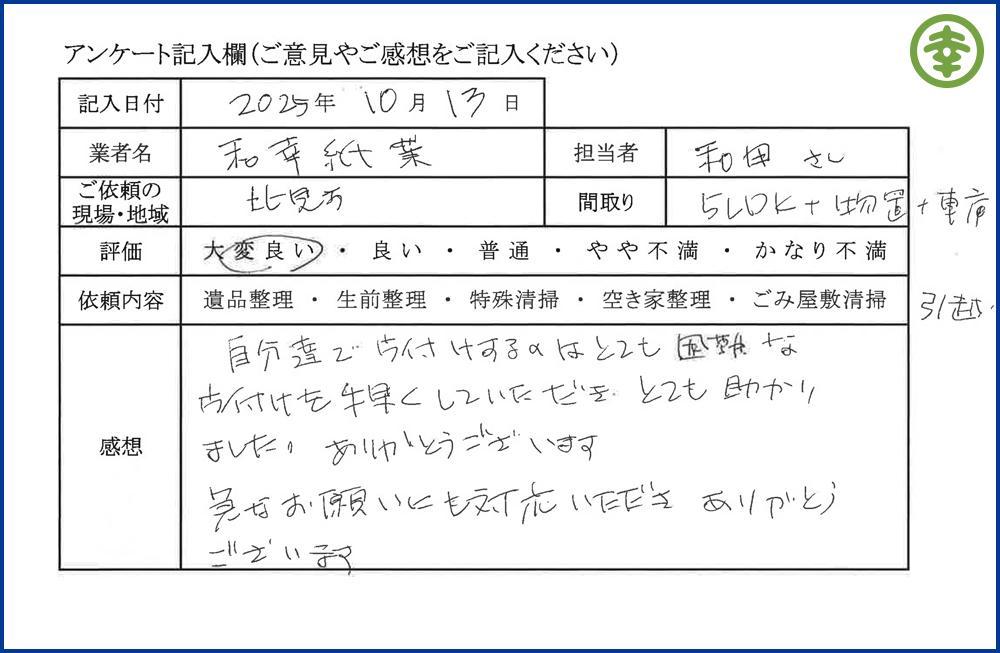 幸
アンケート記入欄(ご意見やご感想をご記入ください)
記入日付 2025年 10月 13日
業者名 和幸紙業 担当者 和田 さん
ご依頼の現場・地域 北見市 間取り 5LDK+物置+車庫
評価 大変良い ・ 良い ・ 普通 ・ やや不満 ・ かなり不満
依頼内容 遺品整理 ・ 生前整理 ・ 特殊清掃 ・ 空き家整理 ・ ごみ屋敷清掃 引越
感想
自分達で片付けするのはとても困難な
片付けを手早くしていただき とても助かり
ました。ありがとうございます
急なお願いにも対応いただき ありがとう
ございます